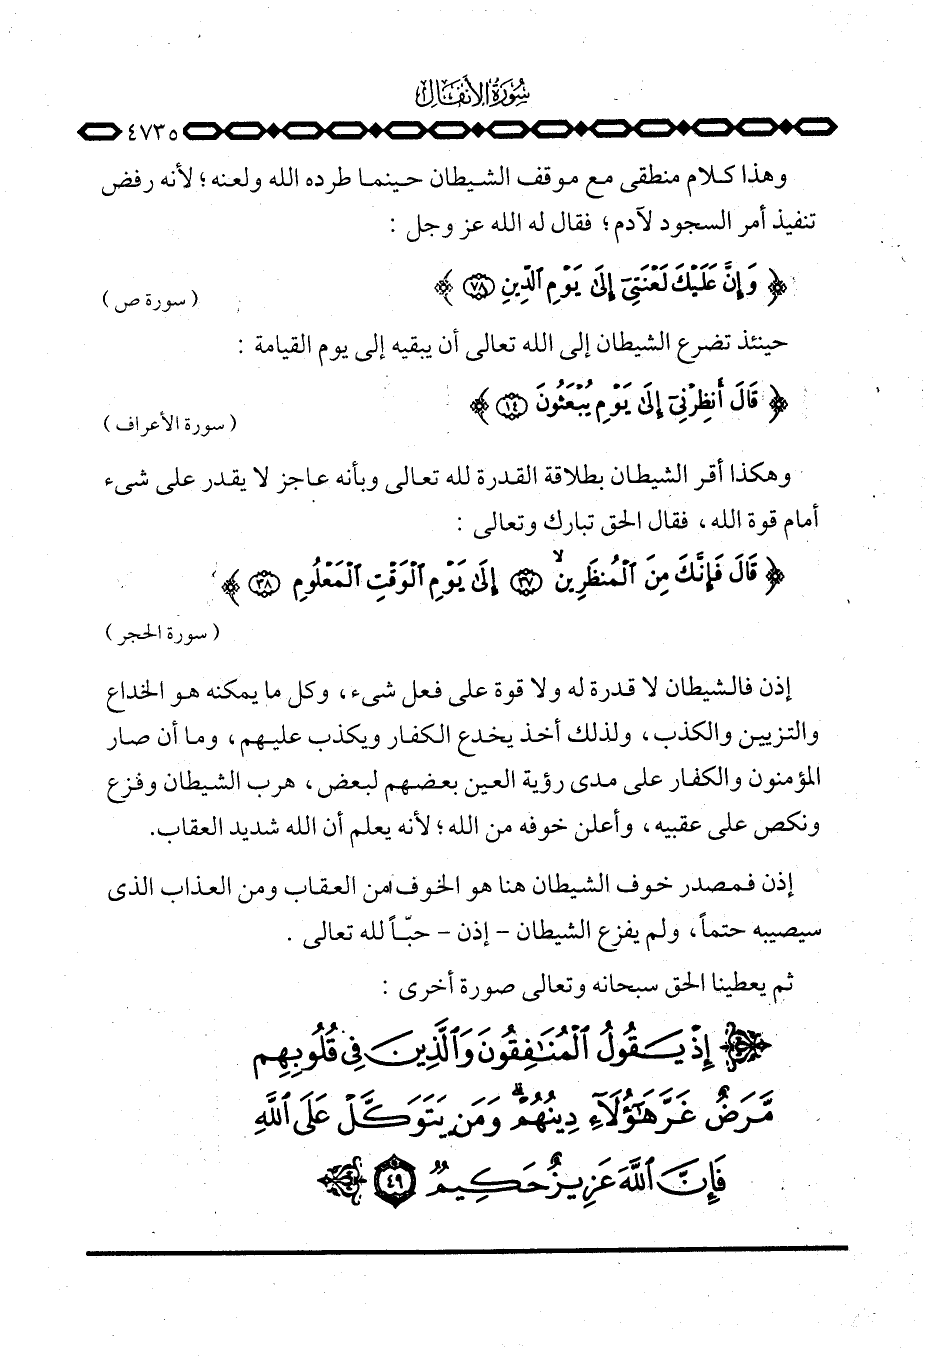 سُورَةُ الأَنفَالِ
٤٧٣٥
وهذا كلام منطقى مع موقف الشيطان حينما طرده الله ولعنه ؛ لأنه رفض
تنفيذ أمر السجود لآدم ؛ فقال له الله عز وجل :
﴿ وَإِنَّ عَلَيْكَ لَعْنَتِي إِلَىٰ يَوْمِ الدِّينِ (٧٨) ﴾
( سورة ص )
حينئذ تضرع الشيطان إلى الله تعالى أن يبقيه إلى يوم القيامة :
﴿ قَالَ أَنظِرْنِي إِلَىٰ يَوْمِ يُبْعَثُونَ (١٤) ﴾
( سورة الأعراف )
وهكذا أقر الشيطان بطلاقة القدرة لله تعالى وبأنه عاجز لا يقدر على شىء
أمام قوة الله ، فقال الحق تبارك وتعالى :
﴿ قَالَ فَإِنَّكَ مِنَ الْمُنظَرِينَ ۙ (٣٧) إِلَىٰ يَوْمِ الْوَقْتِ الْمَعْلُومِ (٣٨) ﴾
( سورة الحجر )
إذن فالشيطان لا قدرة له ولا قوة على فعل شىء ، وكل ما يمكنه هو الخداع
والتزيين والكذب ، ولذلك أخذ يخدع الكفار ويكذب عليهم ، وما أن صار
المؤمنون والكفار على مدى رؤية العين بعضهم لبعض ، هرب الشيطان وفزع
ونكص على عقبيه ، وأعلن خوفه من الله ؛ لأنه يعلم أن الله شديد العقاب.
إذن فمصدر خوف الشيطان هنا هو الخوف من العقاب ومن العذاب الذى
سيصيبه حتماً ، ولم يفزع الشيطان – إذن – حبّاً لله تعالى .
ثم يعطينا الحق سبحانه وتعالى صورة أخرى :
﴿ إِذْ يَقُولُ الْمُنَافِقُونَ وَالَّذِينَ فِي قُلُوبِهِم
مَّرَضٌ غَرَّ هَٰؤُلَاءِ دِينُهُمْ ۗ وَمَن يَتَوَكَّلْ عَلَى اللَّهِ
فَإِنَّ اللَّهَ عَزِيزٌ حَكِيمٌ (٤٩) ﴾